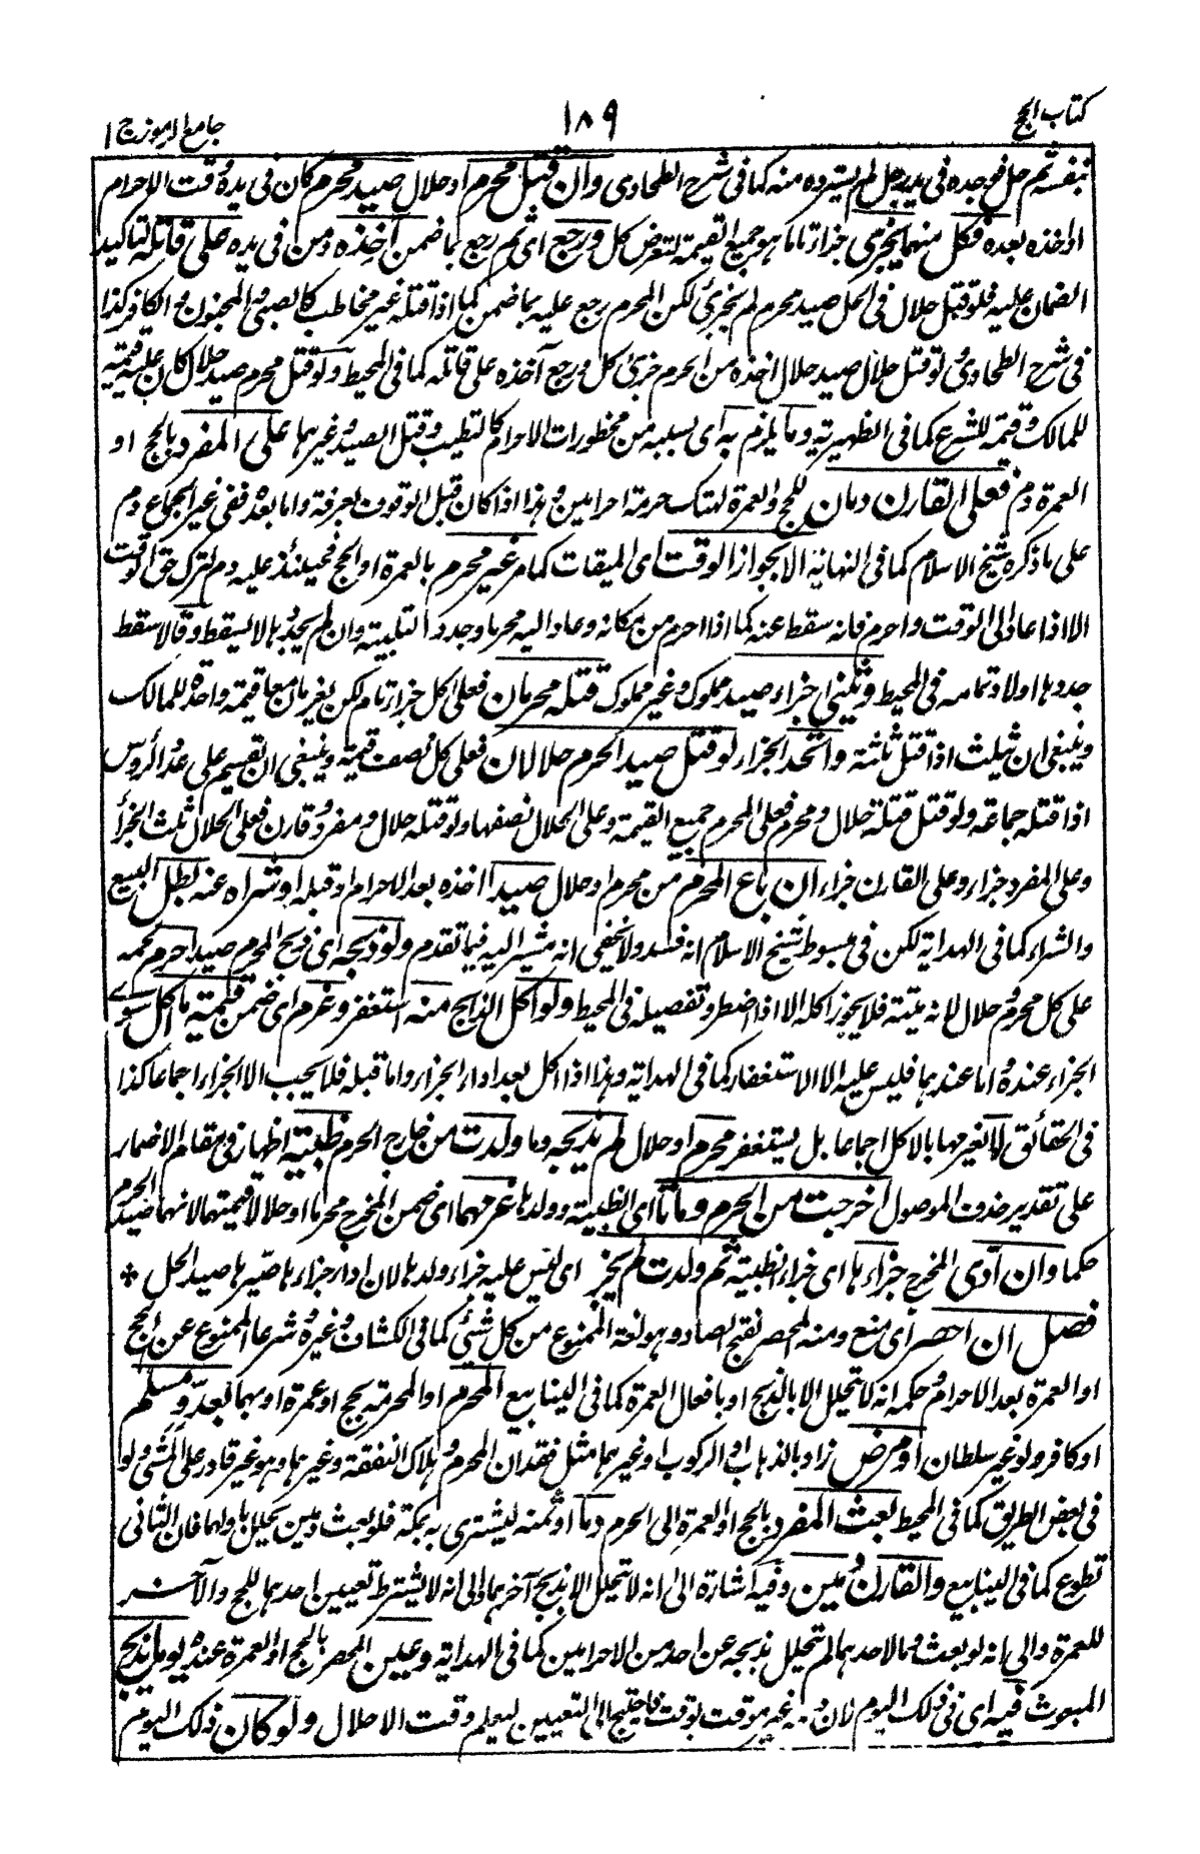 كتاب الحج
١٨٩
جامع الرموز ج ١
بنفسه ثم حل فوجده فى يد رجل لم يسترده منه كما فى شرح الطحاوى وان قتل محرم او حلال صيد محرم كان فى يده وقت الاحرام
او اخذه بعده فكل منهما يجزى جزاء تاما هو جميع القيمة لتعرض كل ورجع اى ثم رجع بما ضمن آخذه ومن فى يده على قاتله لتاكيد
الضمان عليه فلو قتل حلال فى الحل صيد محرم لم يجزئ لكن المحرم رجع عليه بما ضمن كما اذا قتله غير مخاطب كالصبى والمجنون والكافر كذا
فى شرح الطحاوى ولو قتل حلال صيد حلال اخذه من الحرم جزى كل ورجع آخذه على قاتله كما فى المحيط ولو قتل محرم صيد حلال كان عليه قيمته
للمالك وقيمة للشرع كما فى الظهيرية وما يلزم به اى بسببه من محظورات الاحرام كالتطيب وقتل الصيد وغيرهما على المفرد بالحج او
العمرة دم فعلى القارن دمان للحج والعمرة لهتك حرمة احرامين وهذا اذا كان قبل الوقوف بعرفة واما بعده ففى غير الجماع دم
على ما ذكره شيخ الاسلام كما فى النهاية الا بجواز الوقت اى الميقات كما مر غير محرم بالعمرة او الحج فحينئذ عليه دم لترك حق الوقت
الا اذا عاد الى الوقت واحرم فانه سقط عنه كما اذا احرم من مكانه وعاد اليه محرما وجدد التلبية وان لم يجددها لا يسقط وقالا سقط
جددها اولا وتمامه فى المحيط وثنى جزاء صيد مملوك وغير مملوك قتله محرمان فعلى كل جزاء تام لكن يغرمان معا قيمة واحدة للمالك
وينبغى ان يثلث اذا قتل ثلثة واتحد الجزاء لو قتل صيد الحرم حلالان فعلى كل نصف قيمة وينبغى ان تقسيم على عدد الرؤس
اذا قتله جماعة ولو قتل قتله حلال ومحرم فعلى المحرم جميع القيمة وعلى الحلال نصفها ولو قتله حلال ومفرد وقارن فعلى الحلال ثلث الجزاء
وعلى المفرد جزاء وعلى القارن جزاء ان باع المحرم من محرم او حلال صيدا اخذه بعد الاحرام او قبله او شراه عنه بطل البيع
والشراء كما فى الهداية لكن فى مبسوط شيخ الاسلام انه فسد ولا يخفى انه مشير اليه فيما تقدم ولو ذبحه اى ذبح المحرم صيدا حرم لحمه
على كل محرم وحلال لانه ميتة فلا يجوز اكله الا اذا اضطر وتفصيله فى المحيط ولو اكل الذابح منه استغفر وغرم اى ضمن قيمة ما اكل سوى
الجزاء عنده اما عندهما فليس عليه الا الاستغفار كما فى الهداية وهذا اذا اكل بعد اداء الجزاء واما قبله فلا يجب الا الجزاء اجماعا كذا
فى الحقائق لا يغرمها بالاكل اجماعا بل يستغفر محرم او حلال لم يذبحه وما ولدت من خارج الحرم ظبية اظهار فى مقام الاضمار
على تقدير حذف الموصول اخرجت من الحرم وماتا اى الظبية وولدها غرمهما اى ضمن المخرج محرما او حلالا قيمتهما لانهما صيد الحرم
حكما وان ادى المخرج جزاءها اى جزاء الظبية ثم ولدت لم يجز اى ليس عليه جزاء ولدها لان اداء جزاءها صيرها صيد الحل *
فصل ان احصر اى منع ومنه المحصر بفتح الصاد وهو لغة الممنوع من كل شئ كما فى الكشاف وغيره وشرعا الممنوع عن الحج
او العمرة بعد الاحرام وحكمه انه لا يتحلل الا بالذبح او بافعال العمرة كما فى الينابيع المحرم او المحرمة بحج او عمرة او بهما بعدو مسلم
او كافر ولو غير سلطان او مرض زاد بالذهاب او الركوب او غيرهما مثل فقدان المحرم وهلاك النفقة وغيرها وهو غير قادر على المشى ولو
فى بعض الطريق كما فى المحيط بعث المفرد بالحج او العمرة الى الحرم دما او ثمنه ليشترى به بمكة فلو بعث دمين تحلل باولهما فان الثانى
تطوع كما فى الينابيع والقارن دمين وفيه اشارة الى انه لا يتحلل الا بذبح آخرهما والى انه لا يشترط تعيين احدهما للحج والآخر
للعمرة والى انه لو بعث دما لاحدهما لم يتحلل بذبحه عن احد من الاحرامين كما فى الهداية وعين المحصر بالحج او العمرة عنده يوما يذبح
المبعوث فيه اى فى ذلك اليوم لان غير موقت بوقت فاحتيج الى التعيين ليعلم وقت الاحلال ولو كان ذلك اليوم